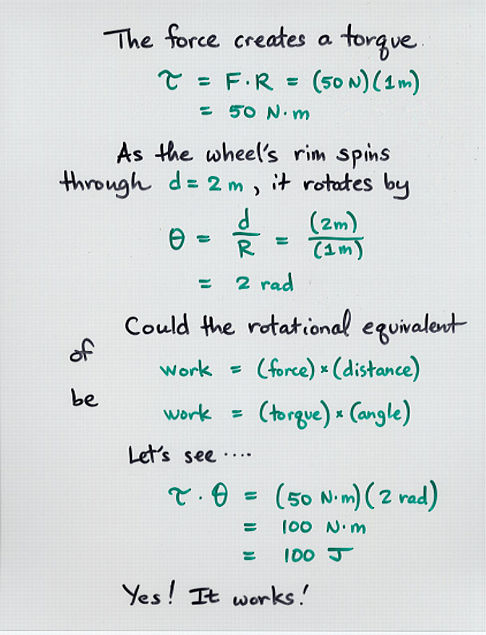 The force creates a torque.
τ = F·R = (50 N)(1m)
= 50 N·m
As the wheel's rim spins
through d = 2 m, it rotates by
θ = d/R = (2m)/(1m)
= 2 rad
Could the rotational equivalent
of
work = (force) × (distance)
be
work = (torque) × (angle)
Let's see ....
τ · θ = (50 N·m)(2 rad)
= 100 N·m
= 100 J
Yes! It works!